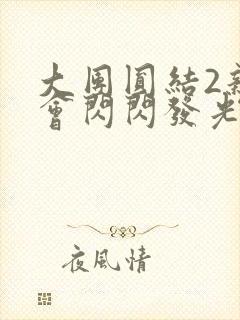 大團圓結2
會閃閃發光
夜風情